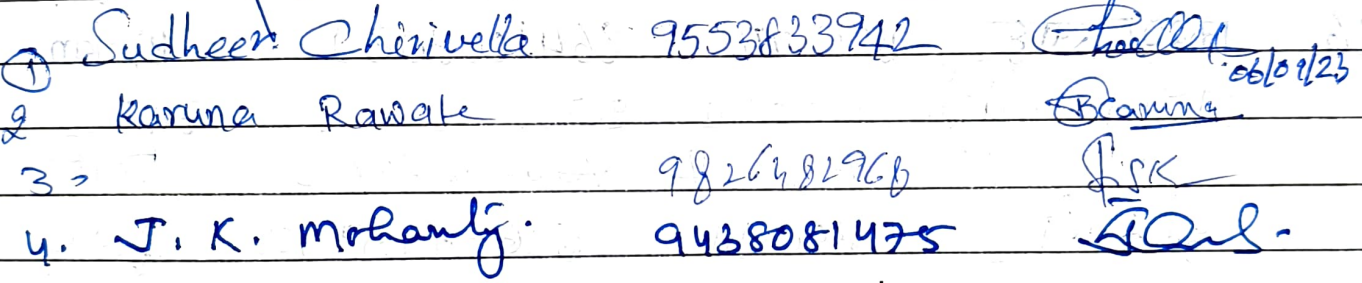 ① Sudheer Chirivella 9553833942
06/09/23
2 Karuna Rawate Karuna
3 9826482968 SK
4. J. K. Mohanty. 9438081475